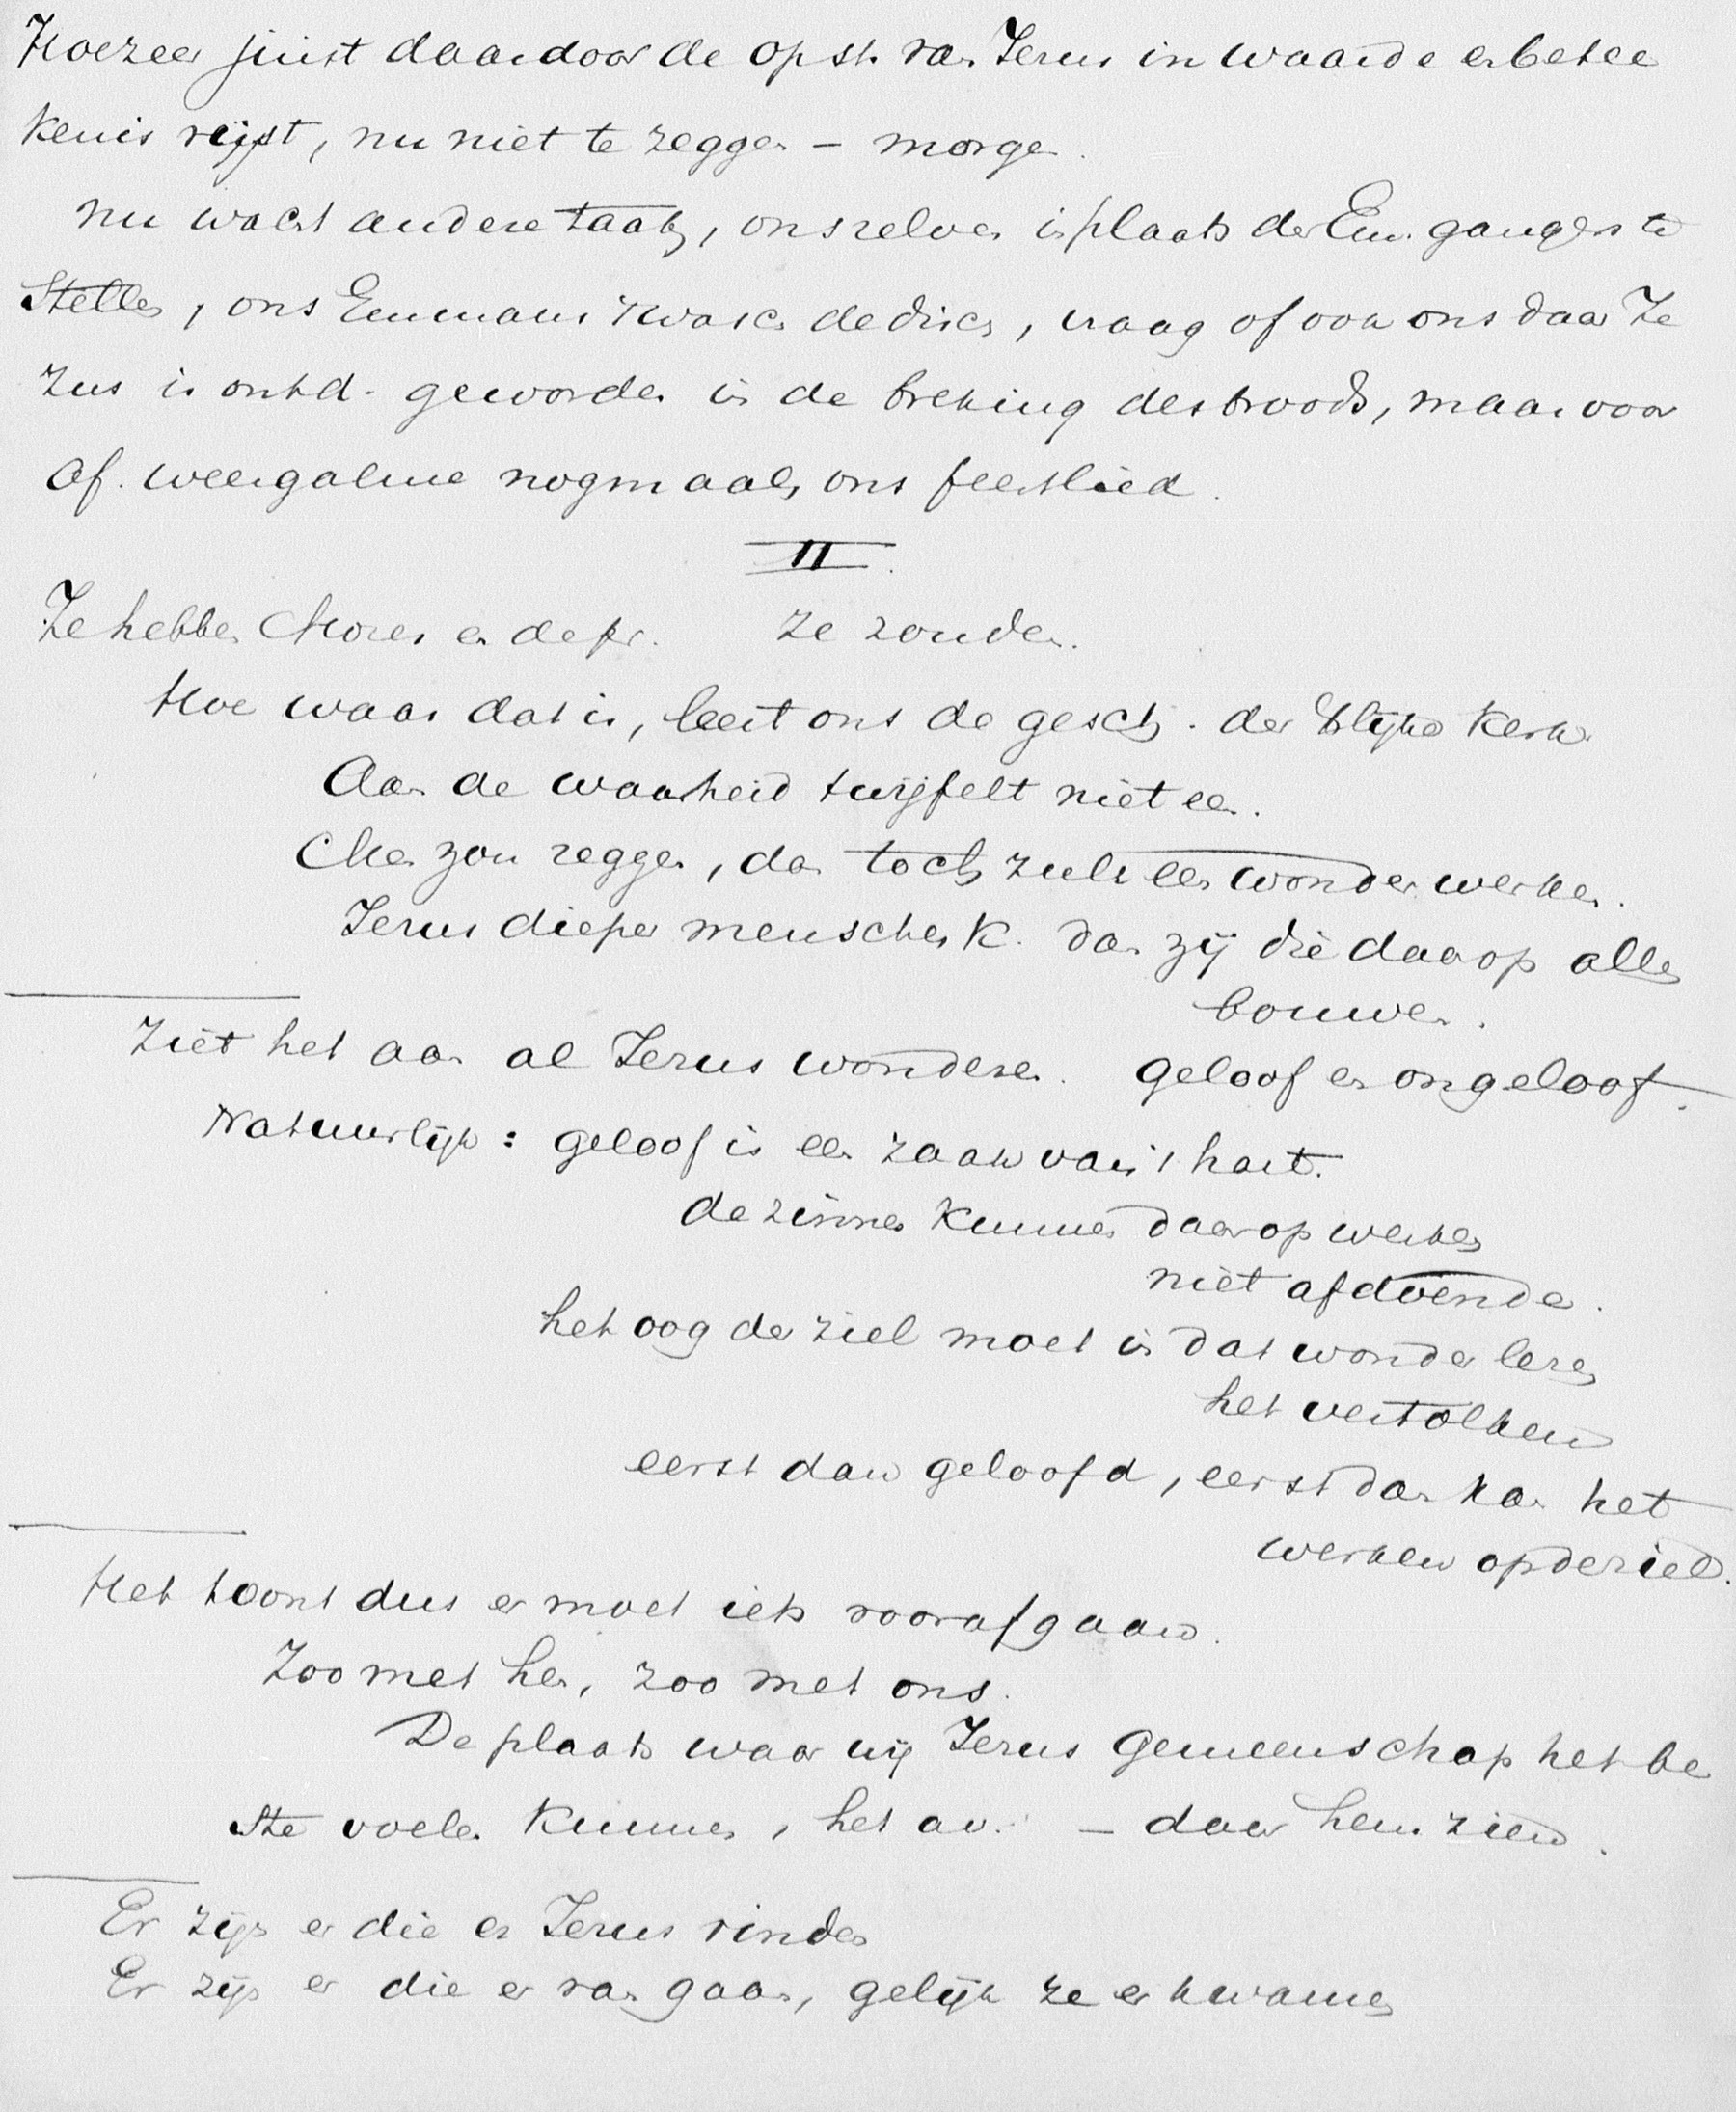 Hoezeer juist daardoor de opst. van Jezus in waarde en betee
kenis rijst, nu niet te zeggen – morgen.
nu wacht andere taak, onszelven in plaats der Em. gangers te
stellen, ons Emmaus was de disch, vraag of ook ons daar Je
zus is ontd. geworden in de breking des broods, maar voor
af. weergalme nogmaals ons feestlied.
II.
Ze hebben Mozes en de pr. Ze zouden.
Hoe waar dat is, leert ons de gesch. der Kerk
Aan de waarheid twijfelt niet een.
Men zou zeggen, dan toch zulk een wonder werken.
Jezus dieper menschenk. dan zij die daarop alles
bouwen.
Ziet het aan al Jezus wonderen. geloof en ongeloof.
Natuurlijk: geloof is een zaak van 't hart.
de zinnen kunnen daarop werken
niet afdoende.
het oog der ziel moet in dat wonder lezen
het vertolken
eerst dan geloofd, eerst dan kan het
werken op de ziel.
Het toont dus er moet iets voorafgaan.
Zoo met hen, zoo met ons.
De plaats waar wij Jezus gemeenschap het be
ste voelen kunnen, het av. – daar hem zien.
Er zijn er die er Jezus vinden
Er zijn er die er van gaan, gelijk ze er kwamen